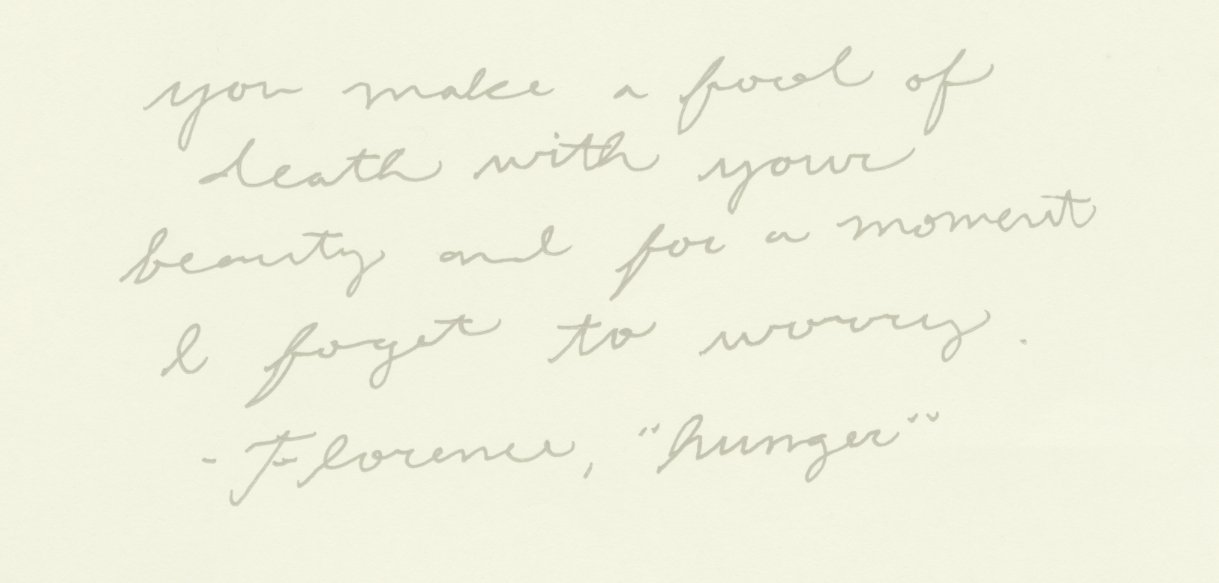 you make a fool of
death with your
beauty and for a moment
I foget to worry.
- Florence, "hunger"